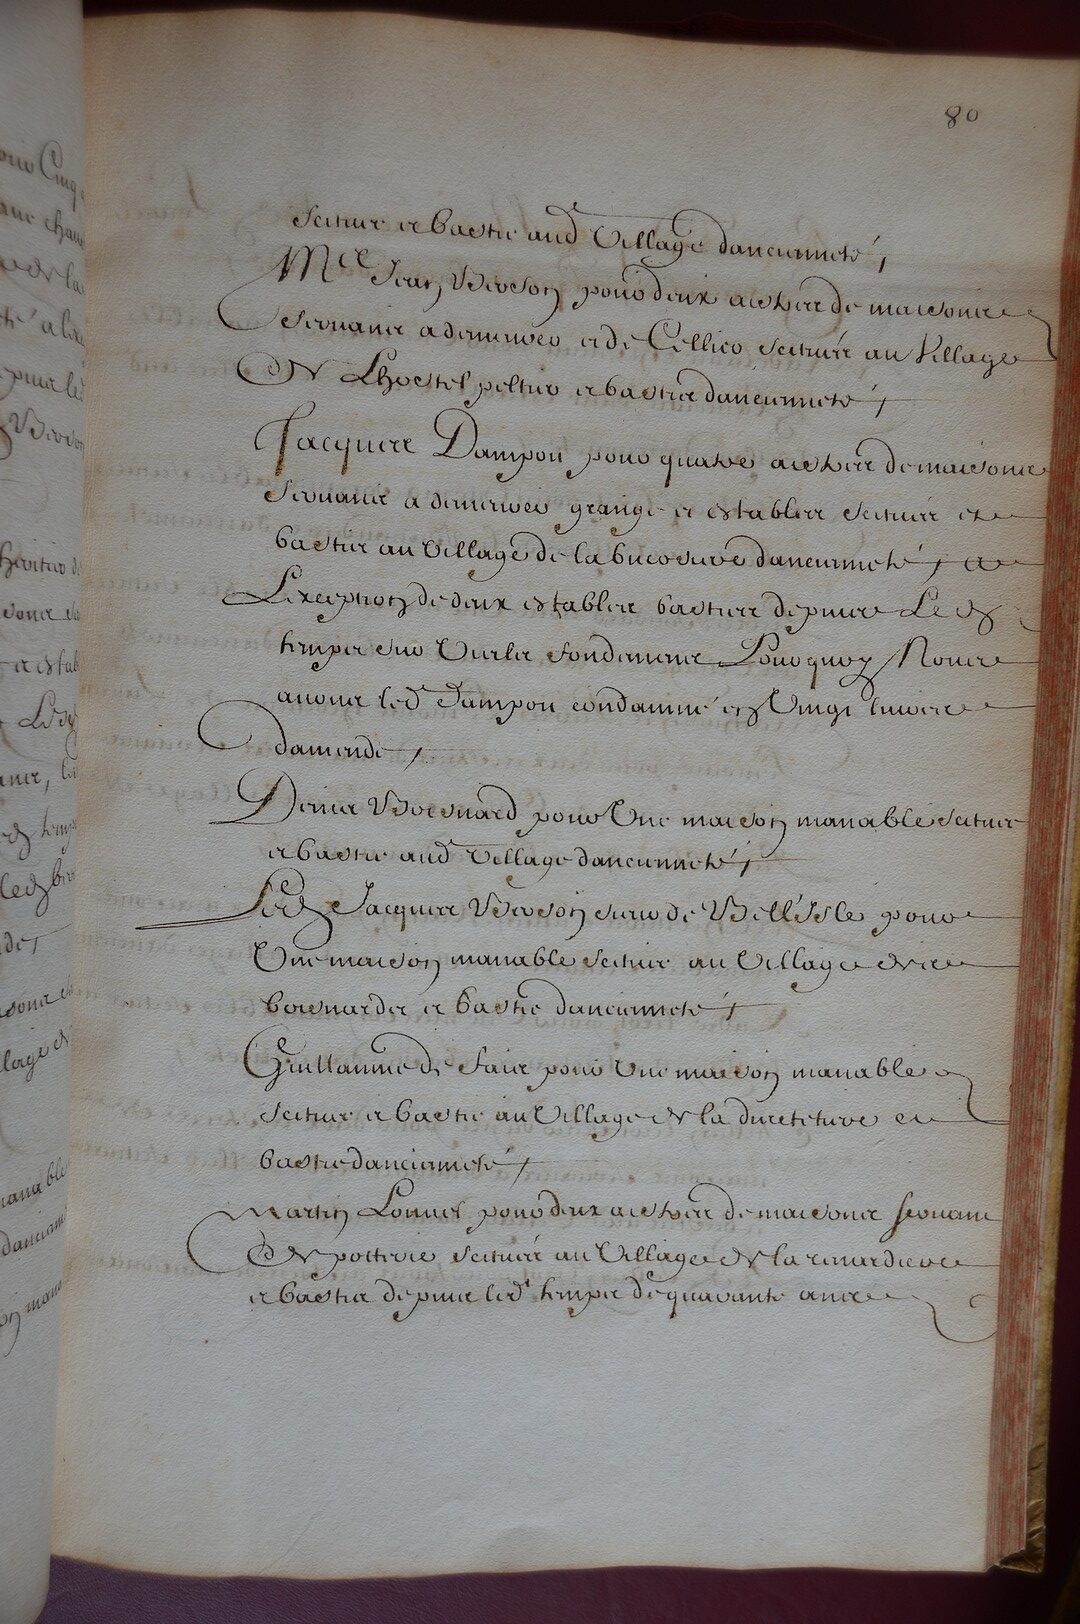 80
Scituée et bastie aud Village dancienneté,
Mre Jean Broson pour deux astres de maisons
servants a demeurer et de Cellier scitués au Village
de Lhostel peltier et bastis dancienneté,
Jacques Dampou pour quatre astres de maisons
servants a demeurer grange et estables scitués et
bastis au Village de la bucosure dancienneté, a
Lexception de deux estables basties depuis Led
temps sur Vieles fondements Pourquoy Nous
avons led Dampou condamné en Vingt livres
damende,
Denis Boesnard pour Une maison manable scituée
et bastie aud Village dancienneté,
Led Jacques Broson sieur de Bellisle pour
Une maison manable scituée au Village des
boesnardes et bastie dancienneté,
Guillaume de faix pour Une maison manable
scituée et bastie au Village de la
bastie dancienneté,
Martin Lonnet pour deux astres de maisons servans
de potterie scitués au Village de la renardiere
et bastis depuis led temps de quarante ans